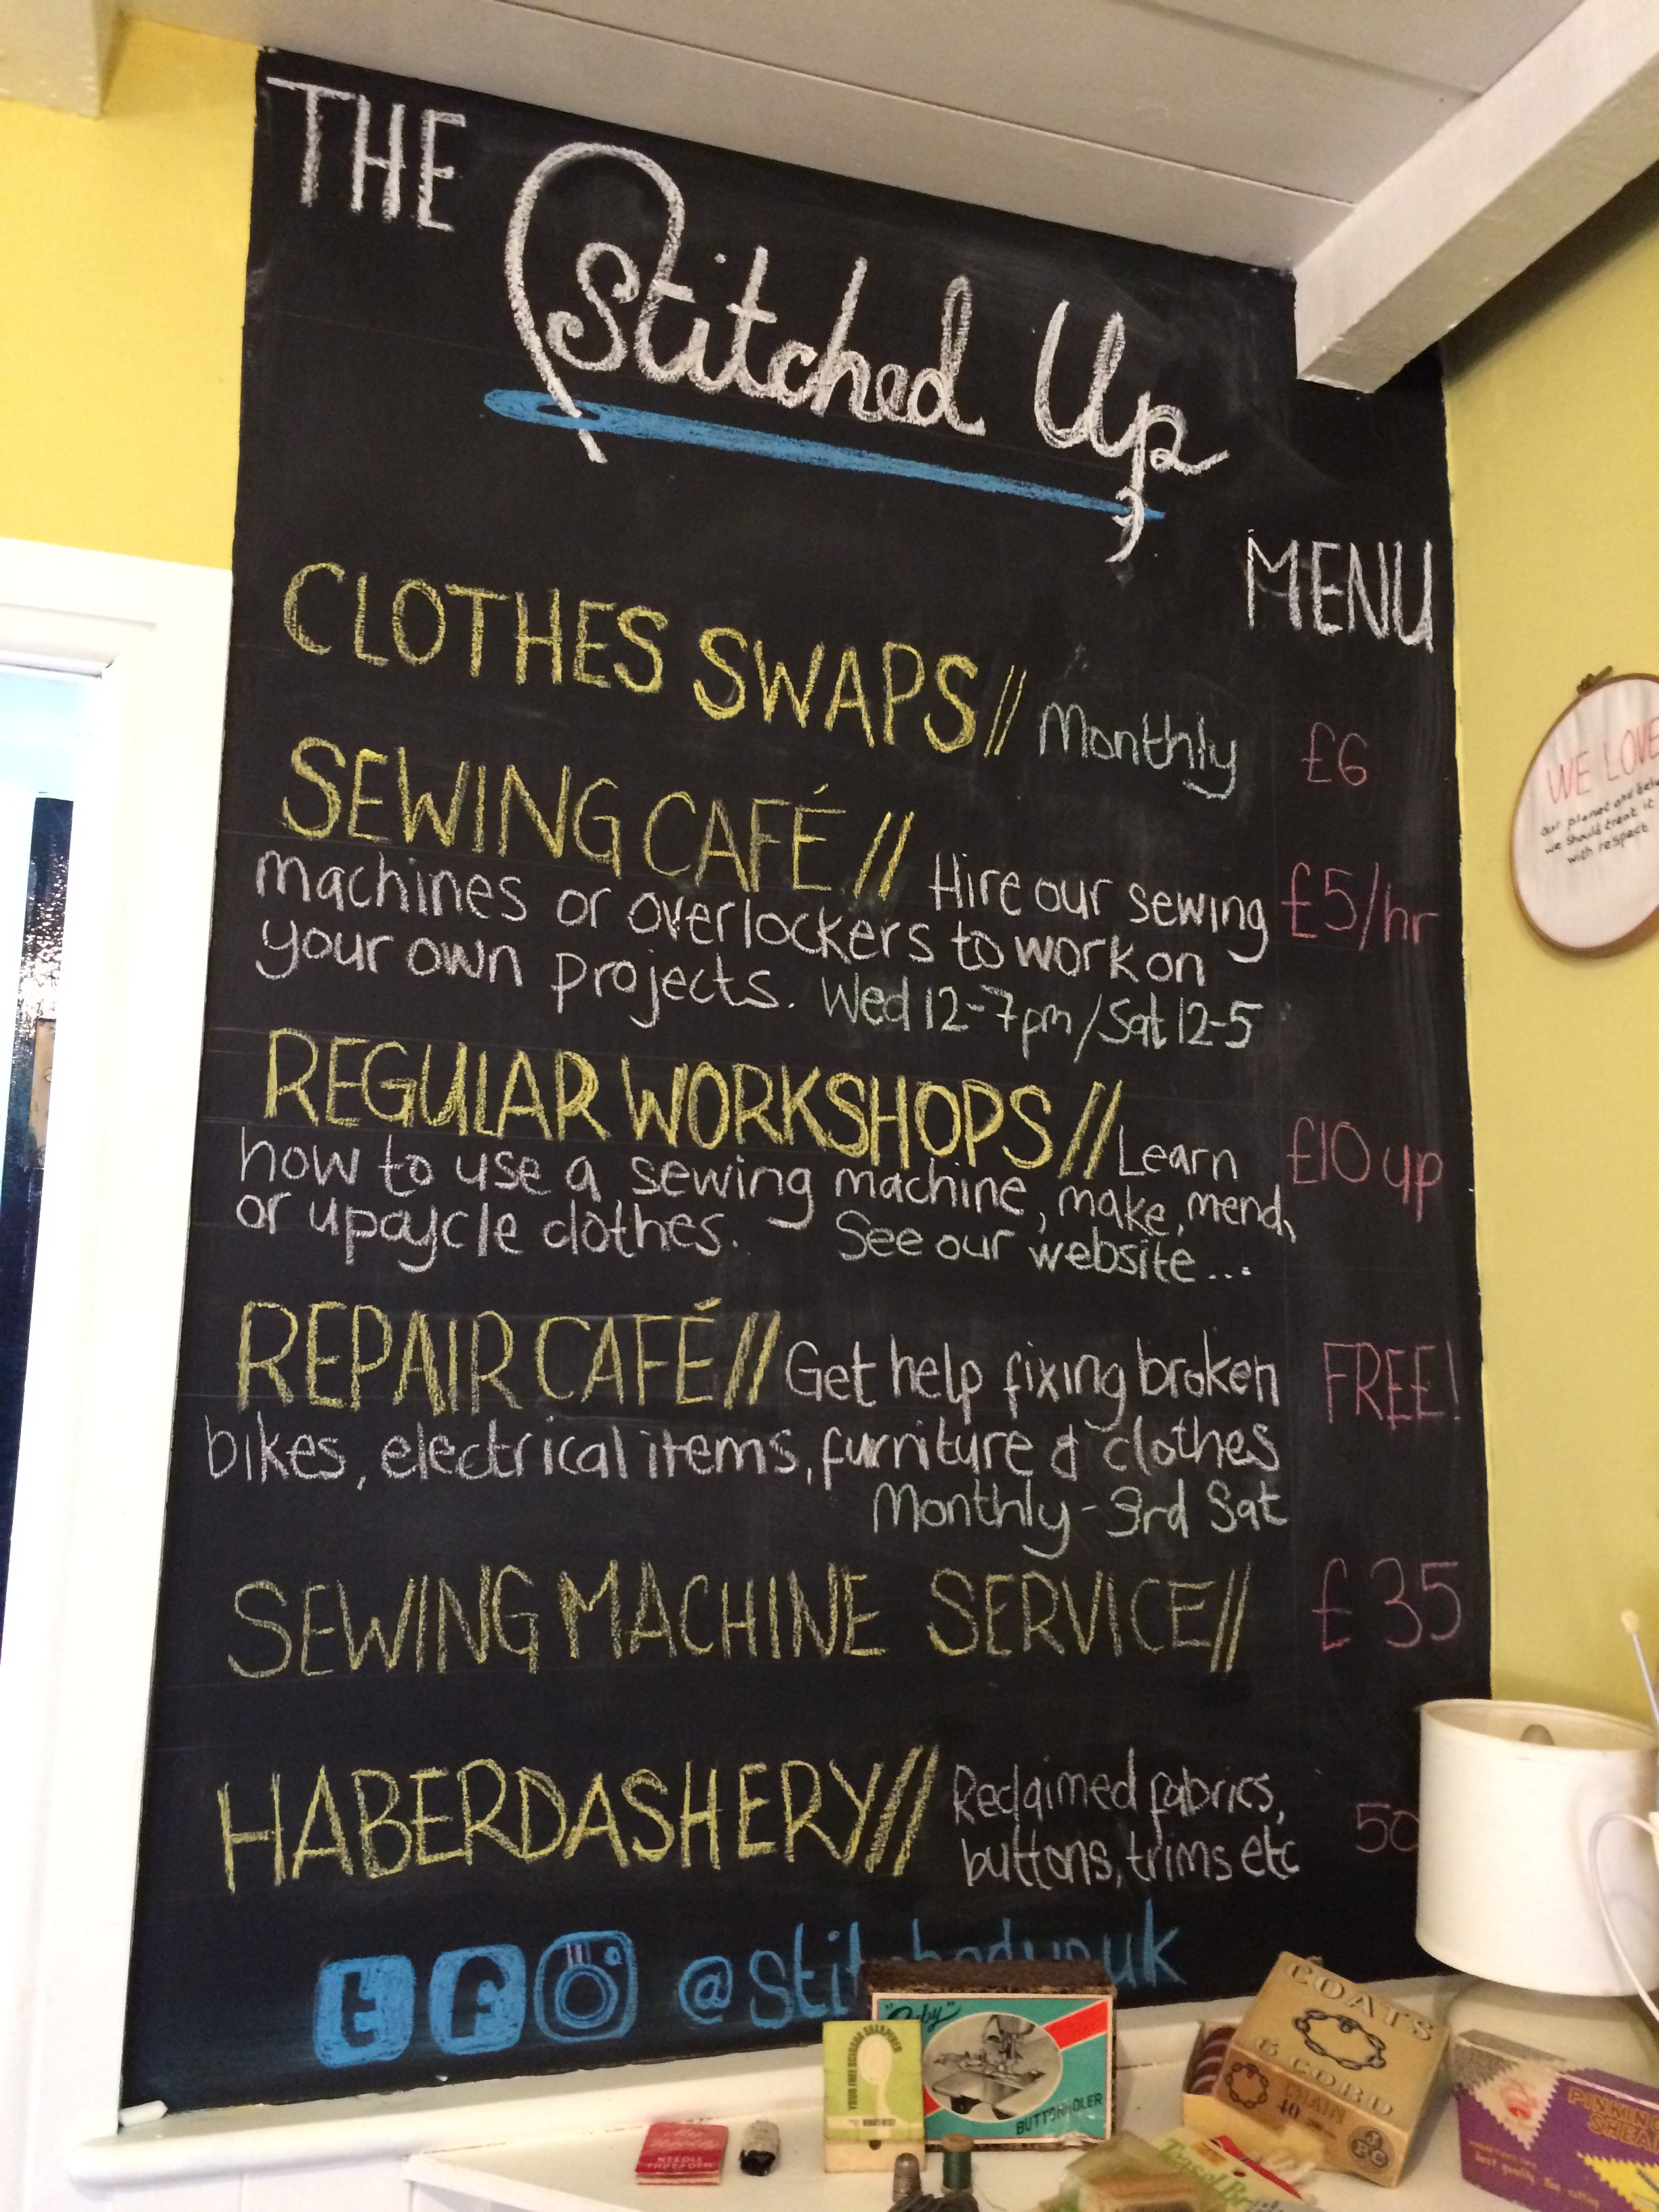 THE
Stitched Up
MENU
CLOTHES SWAPS// Monthly £6
SEWING CAFÉ // Hire our sewing £5/hr
machines or overlockers to work on
your own projects. Wed 12-7pm/Sat 12-5
REGULAR WORKSHOPS// Learn £10 up
how to use a sewing machine, make, mend,
or upcycle clothes. See our website...
REPAIR CAFÉ// Get help fixing broken FREE!
bikes, electrical items, furniture & clothes
Monthly - 3rd Sat
SEWING MACHINE SERVICE// £35
HABERDASHERY// Reclaimed fabrics, 50
buttons, trims etc
t f @stitchedupuk
WE LOVE
our planet and
we should treat it
with respect
YOUR FREE SCISSOR SHARPENER
BUTTONHOLER
COATS
6 CORD
CHAIN
40
NEEDLE
THREADER
PINKING
SHEA